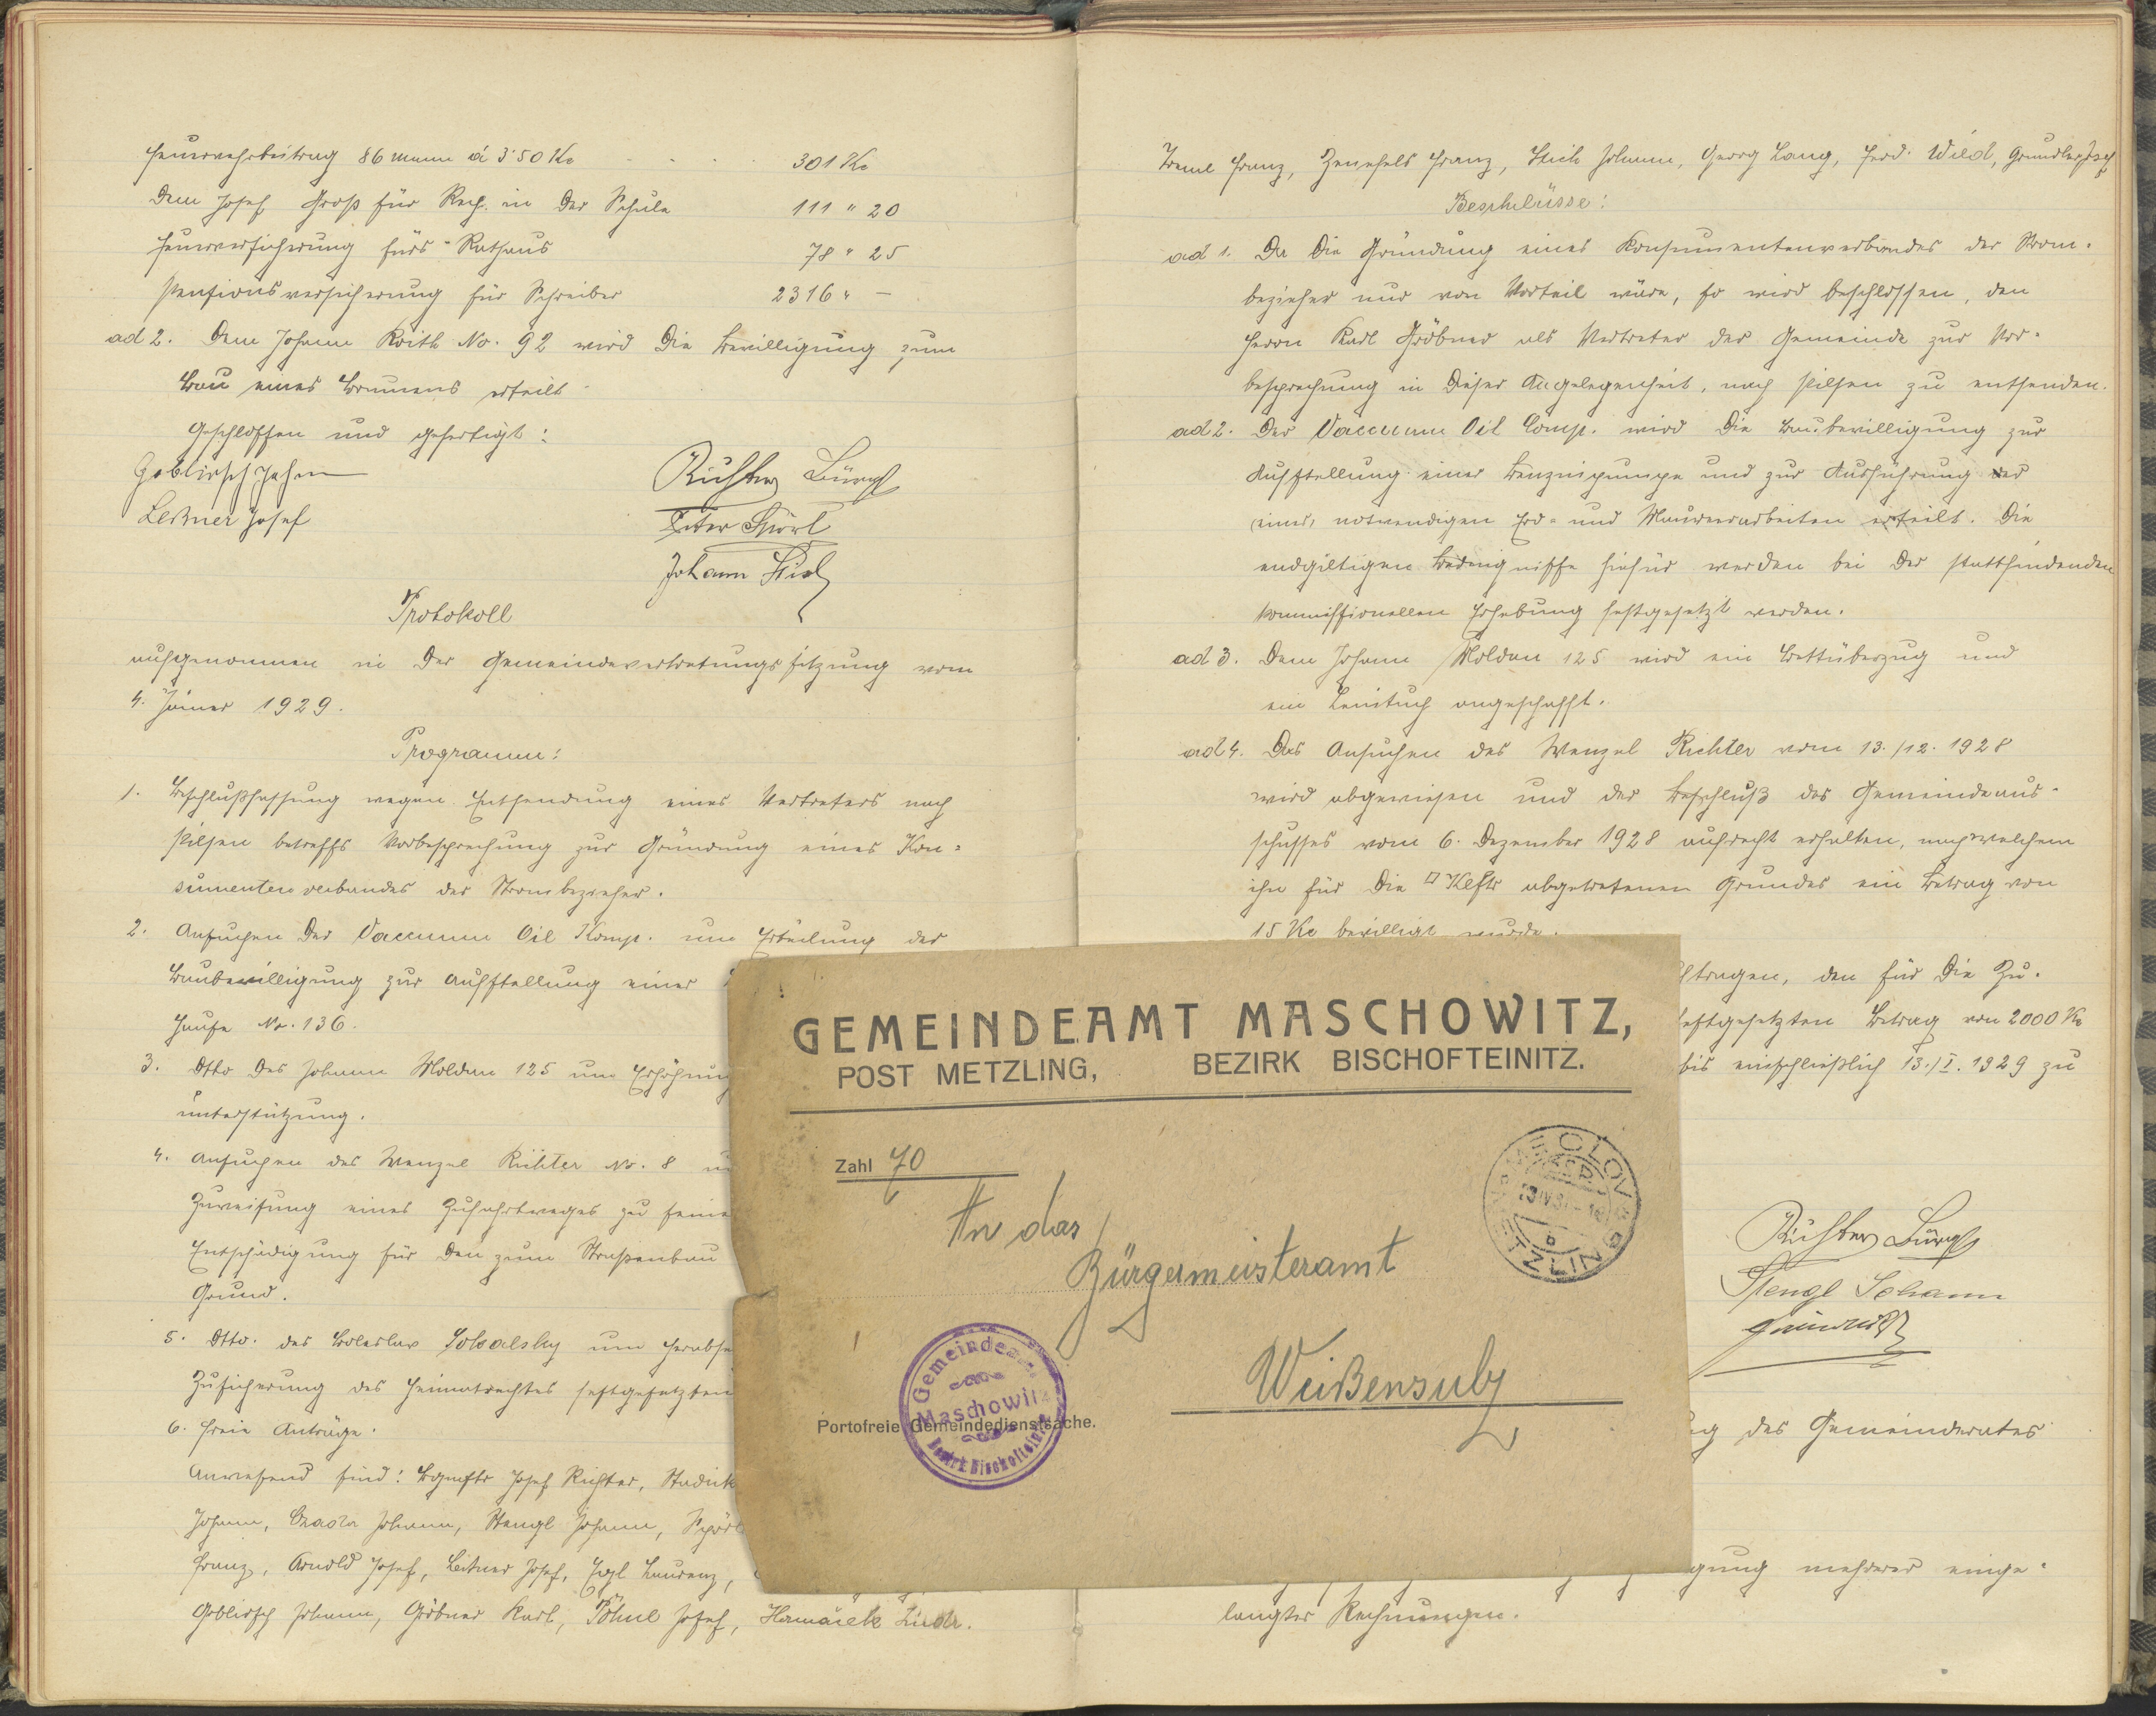 Feuerwehrbeitrag 86 Mann á 3·50 Kc . . . . 301 Kc
Dem Josef Groß für Rech. in der Schule 111 " 20
Feuerversicherung fürs Rathaus 78 " 25
Pensionsversicherung für Schreiber 2316 " —
ad 2. Dem Johann Roith No. 92 wird die Bewilligung zum
Bau eines Brunnens erteilt.
Geschlossen und gefertigt:
Goblirsch Johann
Leitner Josef
Richter Bürgst
Peter Spörl
Johann Stich
Protokoll
aufgenommen in der Gemeindevertretungssitzung vom
4. Jäner 1929.
Programm:
1. Beschlußfassung wegen Entsendung eines Vertreters nach
Pilsen betreffs Vorbesprechung zur Gründung eines Kon=
sumentenverbandes der Strombezieher.
2. Ansuchen der Vaccuum Oil Komp. um Erteilung der
Baubewilligung zur Aufstellung einer
Hause No. 136.
3. Dtto des Johann Moldan 125 um Erhöhung
unterstützung.
4. Ansuchen des Wenzel Richter No. 8 um
Zuweisung eines Zufahrtweges zu seine
Entschädigung für den zum Straßenbau
Grund.
5. Dtto. des Boleslav Sokalsky um Herabse
Zusicherung des Heimatrechtes festgesetzten
6. Freie Anträge.
Anwesend sind: Bgmstr Josef Richter,
Johann, Johann, Stengl Johann, Spörl
Franz, Arnold Josef, Leitner Josef, Laurenz,
Goblirsch Johann, Gröbner Karl, Pöhnl Josef,
Treml Franz, Franz, Stich Johann, Georg Lang, Ferd. Wild, Grundler Josef
Beschlüsse:
ad 1. Da die Gründung eines Konsumentenverbandes der Strom-
bezieher nur von Vorteil wäre, so wird beschlossen, den
Herrn Karl Gröbner als Vertreter der Gemeinde zur Vor-
besprechung in dieser Angelegenheit, nach Pilsen zu entsenden.
ad 2. Der Vaccuum Oil Comp. wird die Baubewilligung zur
Aufstellung einer Benzinpumpe und zur Ausführung der
notwendigen Erd- und Maurerarbeiten erteilt. Die
endgiltigen Bedingnisse hiefür werden bei der stattfindenden
kommissionellen Erhebung festgesetzt werden.
ad 3. Dem Johann Moldan 125 wird ein Bettüberzug und
ein Leintuch angeschafft.
ad 4. Das Ansuchen des Wenzel Richter vom 13./12. 1928
wird abgewiesen und der Beschluß des Gemeindeaus-
schusses vom 6. Dezember 1928 aufrecht erhalten, nach welchem
ihm für die □ Klftr abgetretenen Grundes ein Betrag von
15 Kc bewilligt wurde.
tragen, den für die Zu-
festgesetzten Betrag von 2000 Kc
bis einschließlich 13./I. 1929 zu
Richter Bürgst
Stengl Johann
des Gemeinderates
gung mehrerer einge-
langter Rechnungen.
GEMEINDEAMT MASCHOWITZ,
POST METZLING, BEZIRK BISCHOFTEINITZ.
Zahl 70
An das
Bürgermeisteramt
Weißensulz
Portofreie Gemeindedienstsache.
Gemeindeamt
Maschowitz
Bezirk Bischofteinitz